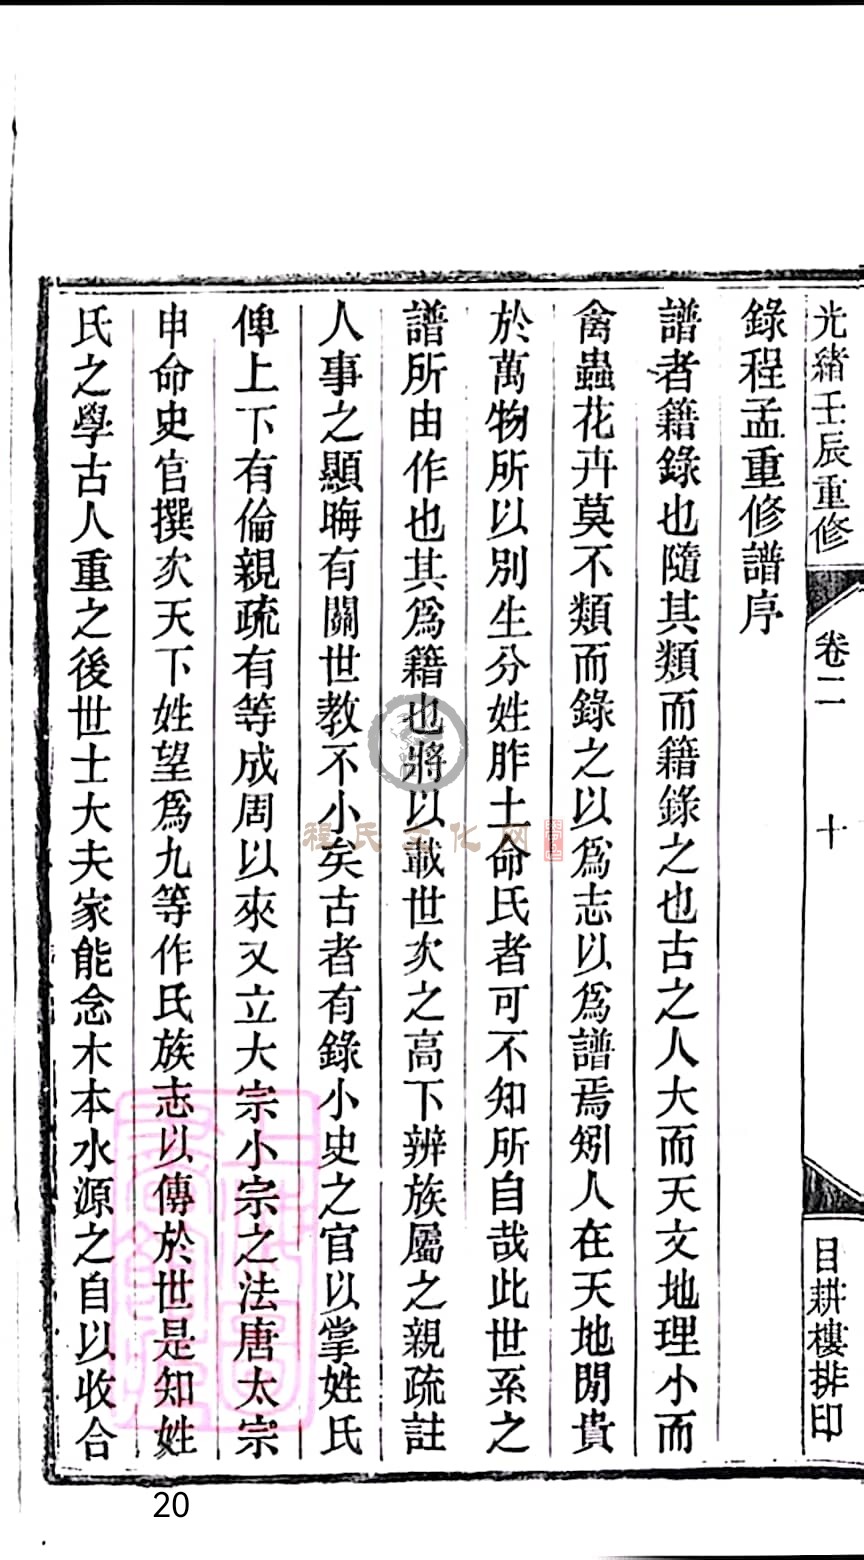 光緒壬辰重修
卷二
十
目耕樓排印
錄程孟重修譜序
譜者籍錄也隨其類而籍錄之也古之人大而天文地理小而
禽蟲花卉莫不類而錄之以爲志以爲譜焉矧人在天地閒貴
於萬物所以別生分姓胙土命氏者可不知所自哉此世系之
譜所由作也其爲籍也將以載世次之高下辨族屬之親疏註
人事之顯晦有關世教不小矣古者有錄小史之官以掌姓氏
俾上下有倫親疏有等成周以來又立大宗小宗之法唐太宗
申命史官撰次天下姓望爲九等作氏族志以傳於世是知姓
氏之學古人重之後世士大夫家能念木本水源之自以收合
程氏文化网
20